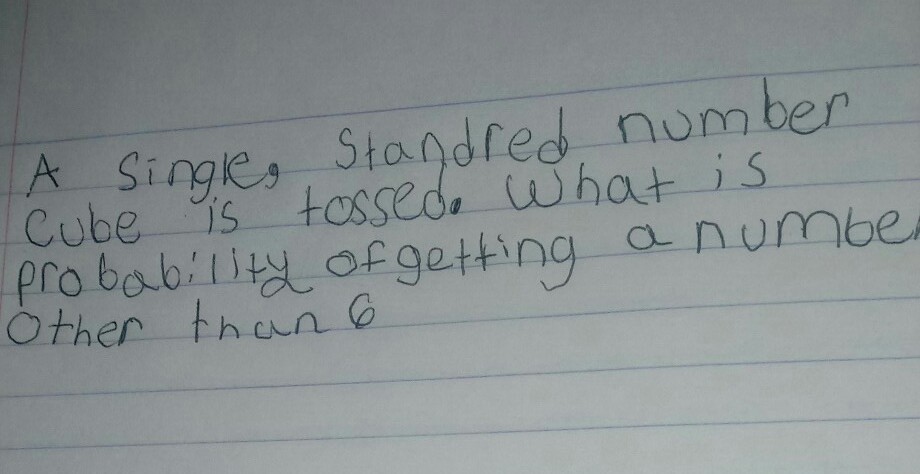 A Single, Standred number
Cube is tossed. What is
probability of getting a number
Other than 6